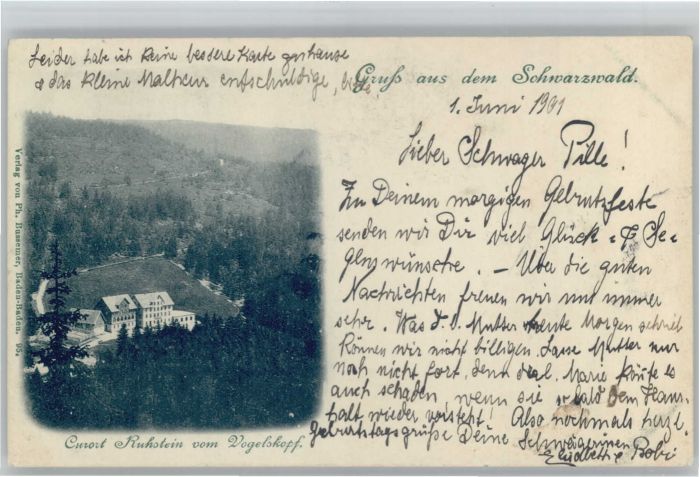 Leider habe ich keine bessere Karte zuhause
& das kleine Malheur entschuldige, bitte.
Gruß aus dem Schwarzwald.
1. Juni 1901
Lieber Schwager Pille!
Zu Deinem morgigen Geburtzfeste
senden wir Dir viel Glück- & Se-
genswünsche. - Über die guten
Nachrichten freuen wir uns immer
sehr. Was d. l. Mutter heute Morgen schrieb
können wir nicht billigen. Lasse Mutter nur
noch nicht fort, denn Marie könte es
auch schaden, wenn sie sobald dem Haus-
halt wieder vorsteht! Also nochmals herzl.
Geburtstagsgrüße Deine Schwägerinnen
Elisabeth & Bobi
Verlag von Ph. Bussemer, Baden-Baden. 95.
Curort Ruhstein vom Vogelskopf.